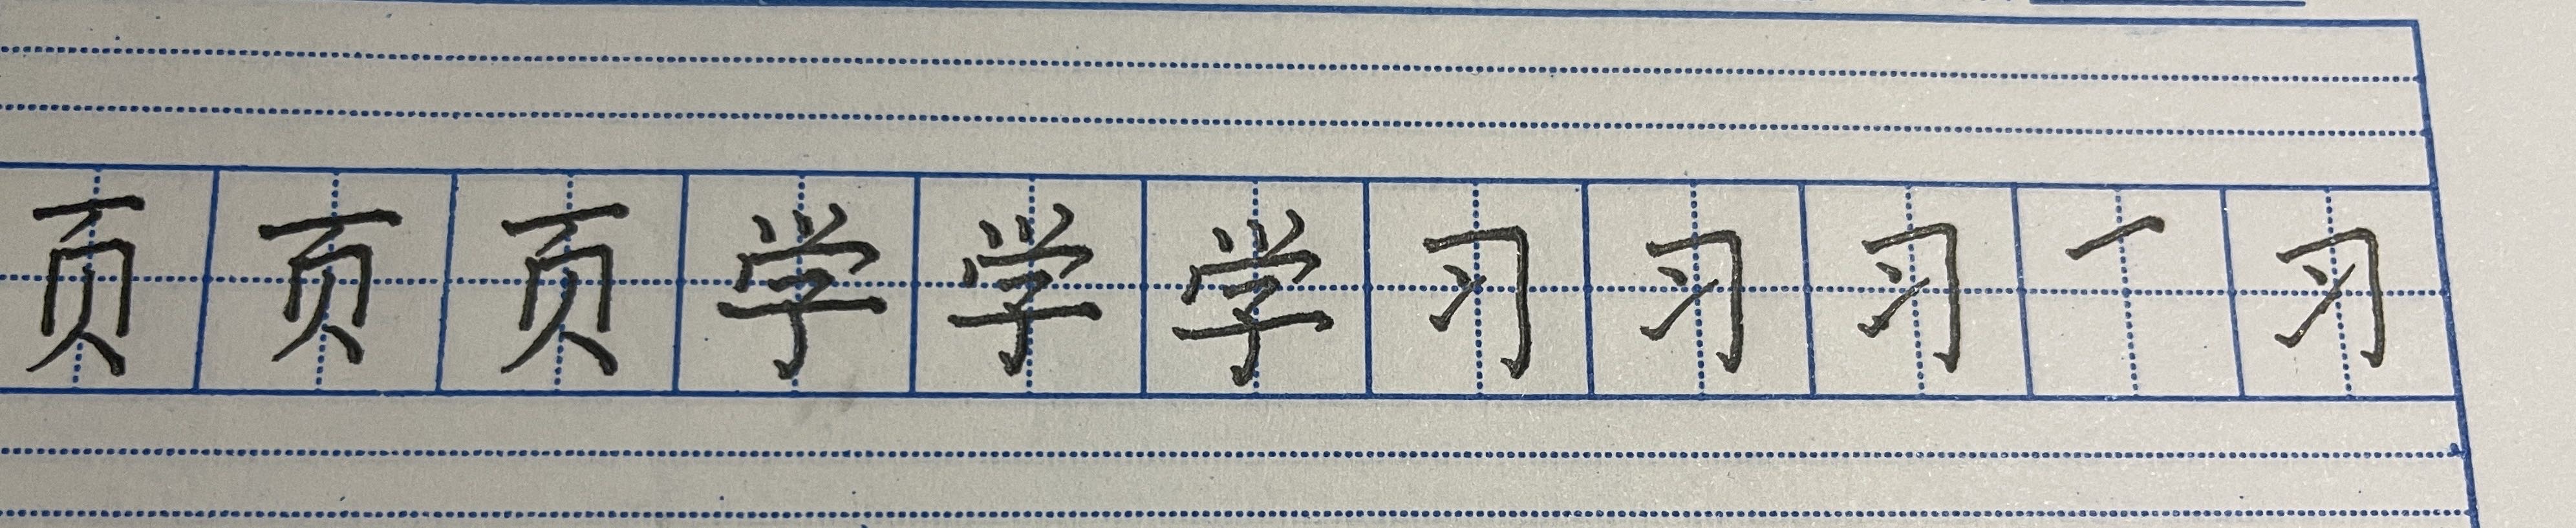 页页页学学学习习习习